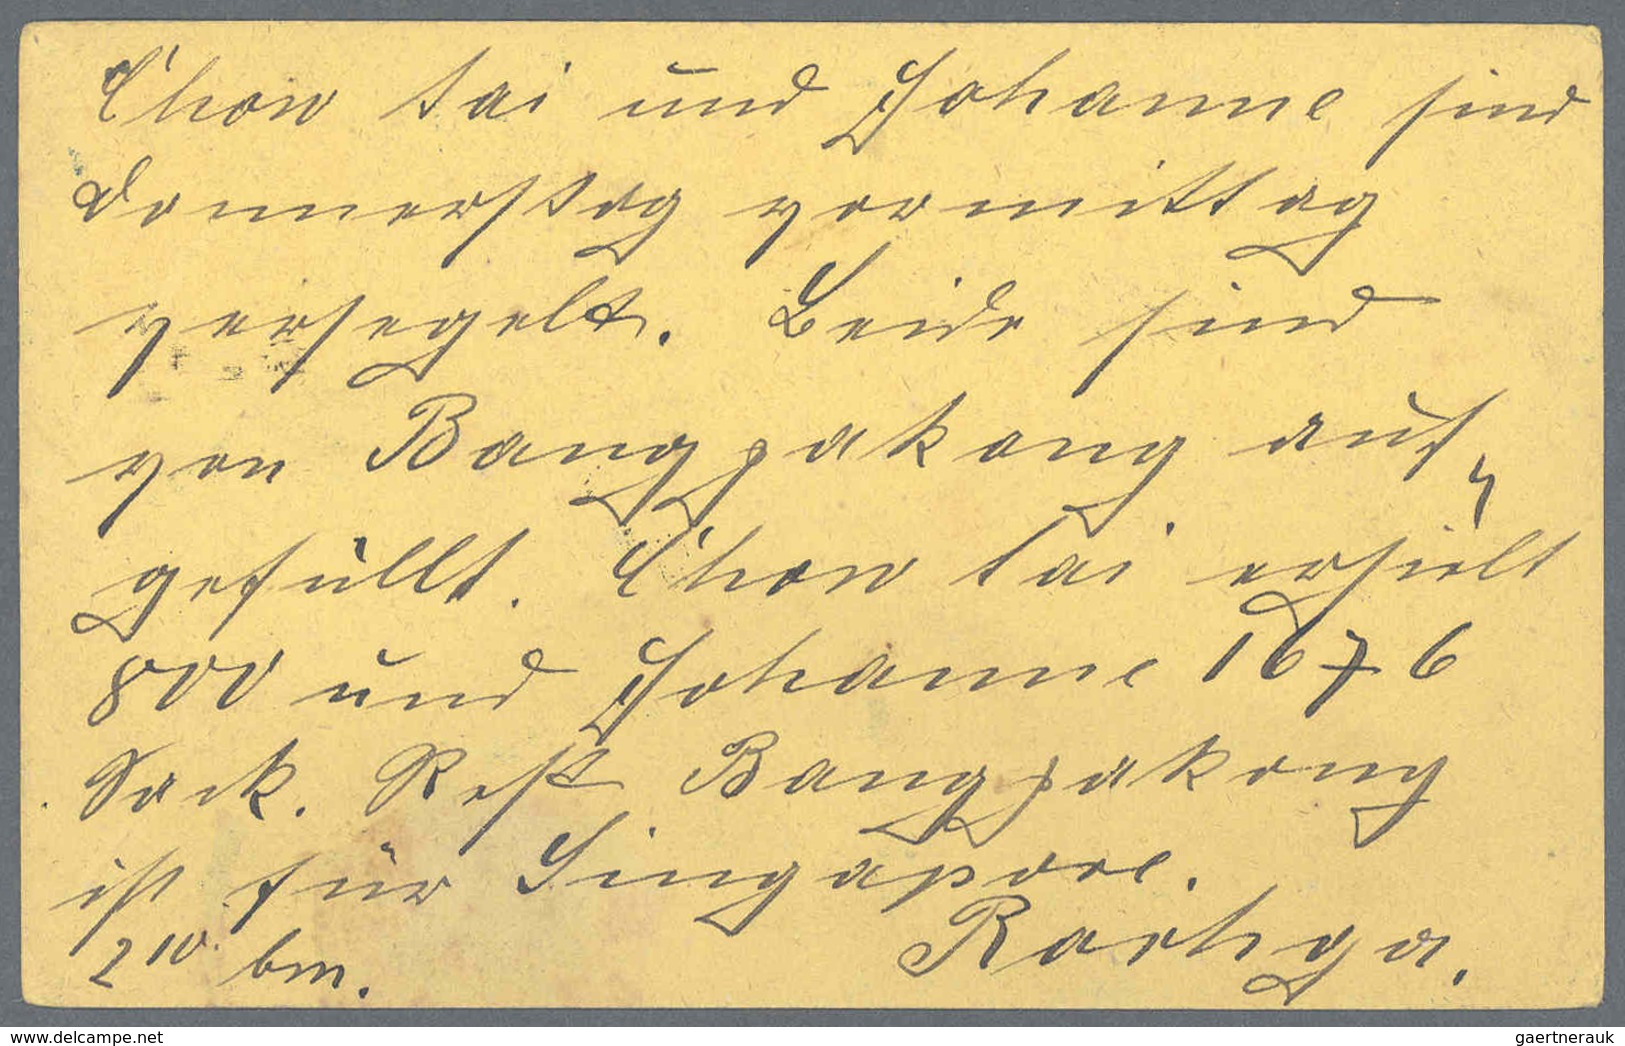 Chow tai und Johanne sind
Donnerstag vormittag
versegelt. Beide sind
von Bangpakong auf„
gefüllt. Chow tai erhielt
800 und Johanne 1676
Sack. Rest Bangpakong
ist für Singapore.
2 10. bm.
gaertnerauk